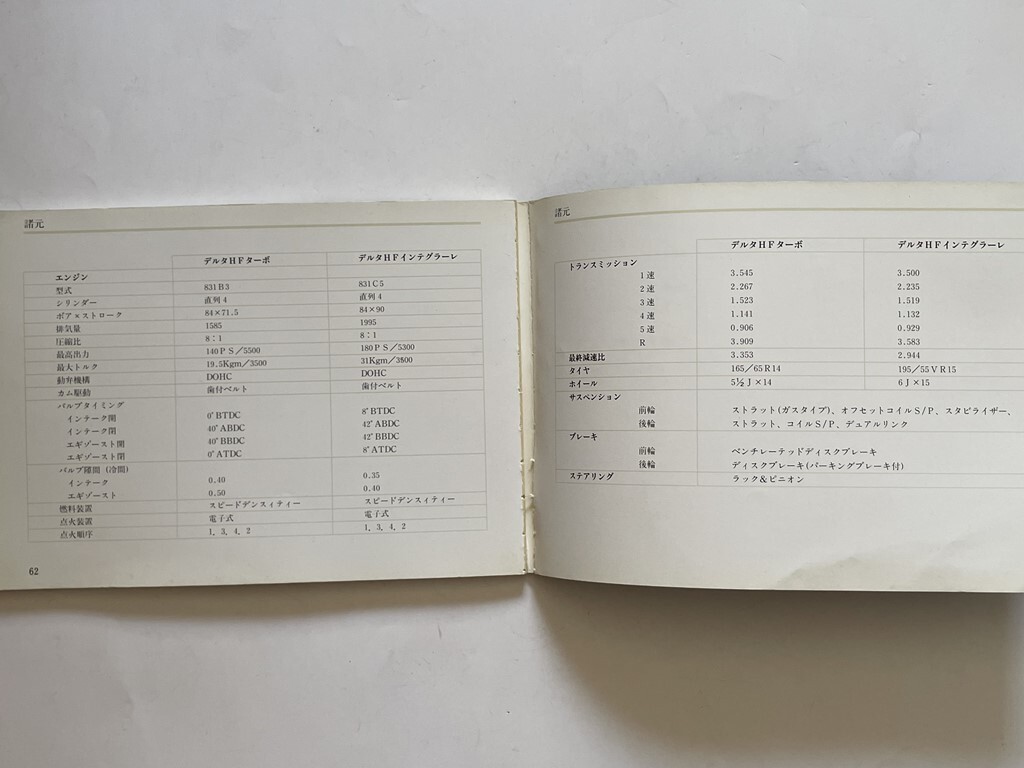 諸元
デルタHFターボ デルタHFインテグラーレ
エンジン
型式 831B3 831C5
シリンダー 直列4 直列4
ボア×ストローク 84×71.5 84×90
排気量 1585 1995
圧縮比 8：1 8：1
最高出力 140PS／5500 180PS／5300
最大トルク 19.5Kgm／3500 31Kgm／3500
動弁機構 DOHC DOHC
カム駆動 歯付ベルト 歯付ベルト
バルブタイミング
インテーク開 0°BTDC 8°BTDC
インテーク閉 40°ABDC 42°ABDC
エギゾースト開 40°BBDC 42°BBDC
エギゾースト閉 0°ATDC 8°ATDC
バルブ隙間（冷間）
インテーク 0.40 0.35
エギゾースト 0.50 0.40
燃料装置 スピードデンスィティー スピードデンスィティー
点火装置 電子式 電子式
点火順序 1，3，4，2 1，3，4，2
62
諸元
デルタHFターボ デルタHFインテグラーレ
トランスミッション
1速 3.545 3.500
2速 2.267 2.235
3速 1.523 1.519
4速 1.141 1.132
5速 0.906 0.929
R 3.909 3.583
最終減速比 3.353 2.944
タイヤ 165／65R14 195／55VR15
ホイール 5½J×14 6J×15
サスペンション
前輪 ストラット(ガスタイプ)、オフセットコイルS／P、スタビライザー、
後輪 ストラット、コイルS／P、デュアルリンク
ブレーキ
前輪 ベンチレーテッドディスクブレーキ
後輪 ディスクブレーキ(パーキングブレーキ付)
ステアリング ラック&ピニオン